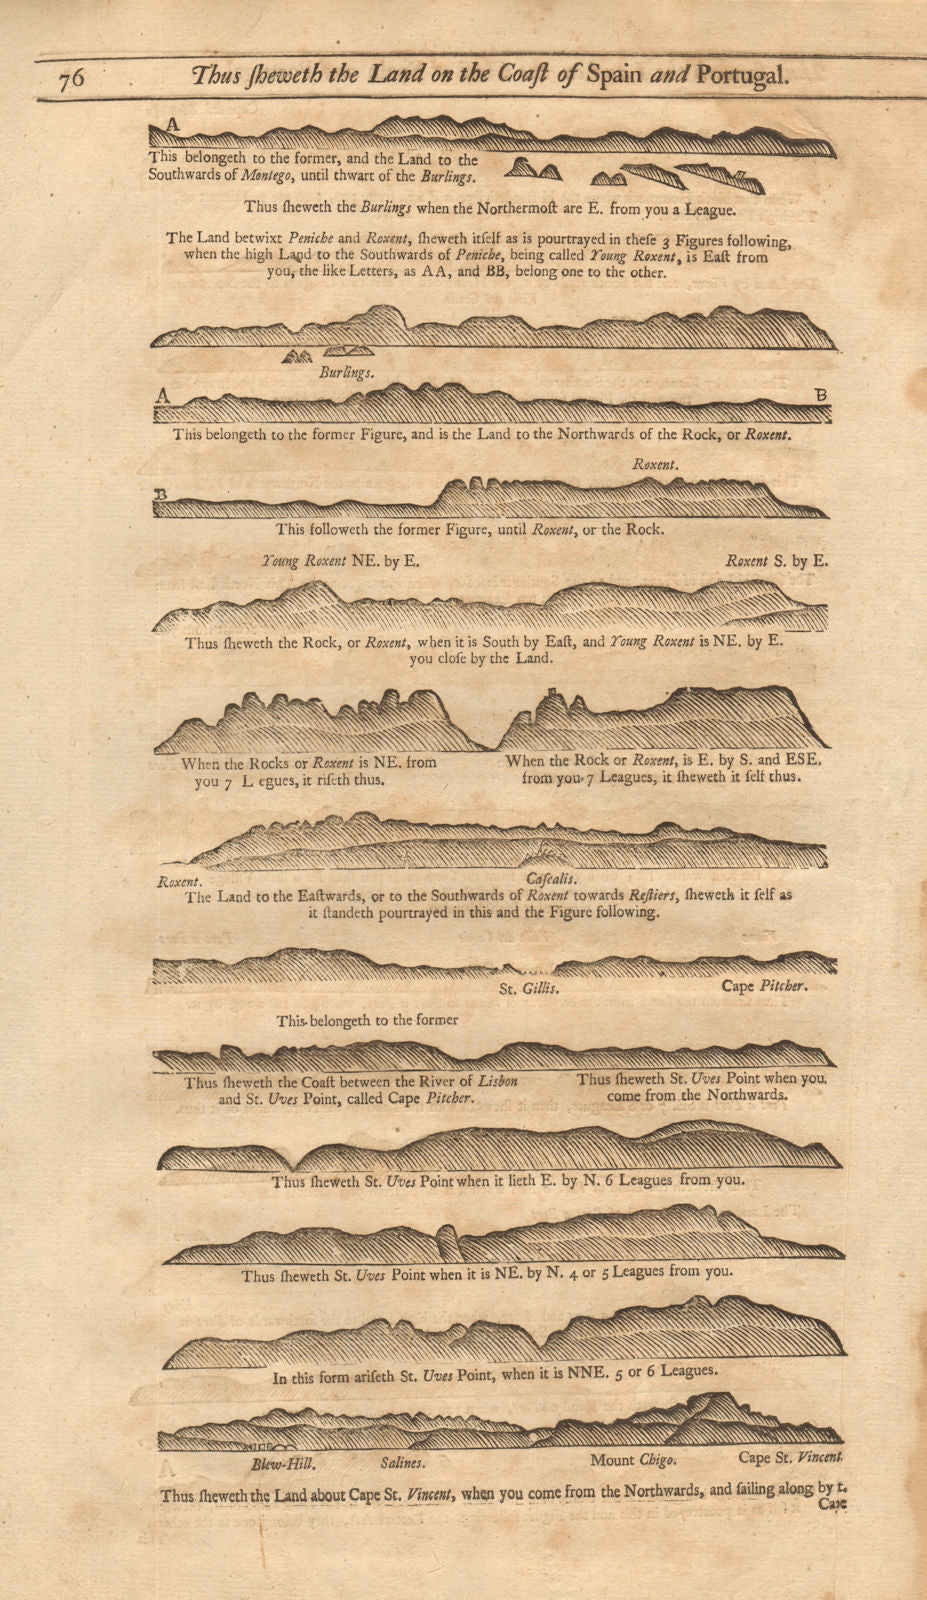 76 Thus ſheweth the Land on the Coaſt of Spain and Portugal.
A
This belongeth to the former, and the Land to the
Southwards of Montego, until thwart of the Burlings.
Thus ſheweth the Burlings when the Northermoſt are E. from you a League.
The Land betwixt Peniche and Roxent, ſheweth itſelf as is pourtrayed in theſe 3 Figures following,
when the high Land to the Southwards of Peniche, being called Young Roxent, is Eaſt from
you, the like Letters, as AA, and BB, belong one to the other.
Burlings.
A B
This belongeth to the former Figure, and is the Land to the Northwards of the Rock, or Roxent.
Roxent.
B
This followeth the former Figure, until Roxent, or the Rock.
Young Roxent NE. by E. Roxent S. by E.
Thus ſheweth the Rock, or Roxent, when it is South by Eaſt, and Young Roxent is NE. by E.
you cloſe by the Land.
When the Rocks or Roxent is NE. from
you 7 L egues, it riſeth thus.
When the Rock or Roxent, is E. by S. and ESE.
from you 7 Leagues, it ſheweth it ſelf thus.
Roxent. Caſcalis.
The Land to the Eaſtwards, or to the Southwards of Roxent towards Reſtiers, ſheweth it ſelf as
it ſtandeth pourtrayed in this and the Figure following.
St. Gillis. Cape Pitcher.
This belongeth to the former
Thus ſheweth the Coaſt between the River of Lisbon
and St. Uves Point, called Cape Pitcher.
Thus ſheweth St. Uves Point when you
come from the Northwards.
Thus ſheweth St. Uves Point when it lieth E. by N. 6 Leagues from you.
Thus ſheweth St. Uves Point when it is NE. by N. 4 or 5 Leagues from you.
In this form ariſeth St. Uves Point, when it is NNE. 5 or 6 Leagues.
Blew-Hill. Salines. Mount Chigo. Cape St. Vincent.
Thus ſheweth the Land about Cape St. Vincent, when you come from the Northwards, and ſailing along by t.
Cape